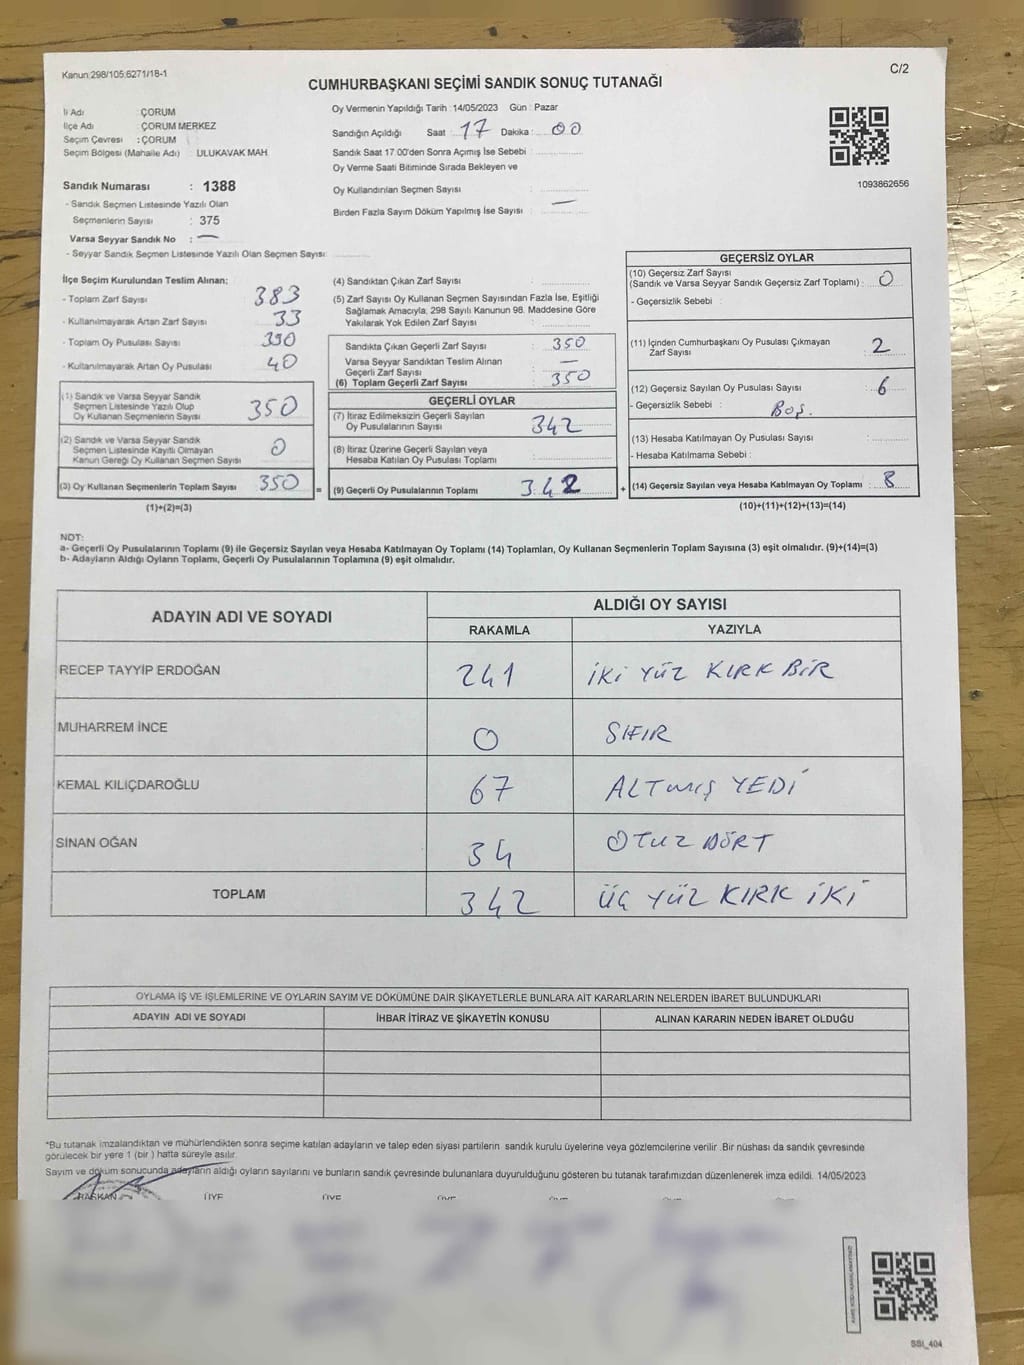 Kanun:298/105;6271/18-1
C/2
CUMHURBAŞKANI SEÇİMİ SANDIK SONUÇ TUTANAĞI
İl Adı : ÇORUM
İlçe Adı : ÇORUM MERKEZ
Seçim Çevresi : ÇORUM
Seçim Bölgesi (Mahalle Adı) : ULUKAVAK MAH.
Sandık Numarası : 1388
- Sandık Seçmen Listesinde Yazılı Olan
Seçmenlerin Sayısı : 375
Varsa Seyyar Sandık No : —
- Seyyar Sandık Seçmen Listesinde Yazılı Olan Seçmen Sayısı :
Oy Vermenin Yapıldığı Tarih : 14/05/2023 Gün : Pazar
Sandığın Açıldığı Saat : 17 Dakika : 00
Sandık Saat 17:00'den Sonra Açımış İse Sebebi :
Oy Verme Saati Bitiminde Sırada Bekleyen ve
Oy Kullandırılan Seçmen Sayısı :
Birden Fazla Sayım Döküm Yapılmış İse Sayısı : —
1093862656
İlçe Seçim Kurulundan Teslim Alınan:
- Toplam Zarf Sayısı 383
- Kullanılmayarak Artan Zarf Sayısı 33
- Toplam Oy Pusulası Sayısı 390
- Kullanılmayarak Artan Oy Pusulası 40
(1) Sandık ve Varsa Seyyar Sandık
Seçmen Listesinde Yazılı Olup
Oy Kullanan Seçmenlerin Sayısı 350
(2) Sandık ve Varsa Seyyar Sandık
Seçmen Listesinde Kayıtlı Olmayan
Kanun Gereği Oy Kullanan Seçmen Sayısı 0
(3) Oy Kullanan Seçmenlerin Toplam Sayısı 350
(1)+(2)=(3)
(4) Sandıktan Çıkan Zarf Sayısı :
(5) Zarf Sayısı Oy Kullanan Seçmen Sayısından Fazla İse, Eşitliği
Sağlamak Amacıyla, 298 Sayılı Kanunun 98. Maddesine Göre
Yakılarak Yok Edilen Zarf Sayısı :
Sandıkta Çıkan Geçerli Zarf Sayısı : 350
Varsa Seyyar Sandıktan Teslim Alınan
Geçerli Zarf Sayısı : —
(6) Toplam Geçerli Zarf Sayısı : 350
GEÇERLİ OYLAR
(7) İtiraz Edilmeksizin Geçerli Sayılan
Oy Pusulalarının Sayısı : 342
(8) İtiraz Üzerine Geçerli Sayılan veya
Hesaba Katılan Oy Pusulası Toplamı :
= (9) Geçerli Oy Pusulalarının Toplamı : 342
GEÇERSİZ OYLAR
(10) Geçersiz Zarf Sayısı
(Sandık ve Varsa Seyyar Sandık Geçersiz Zarf Toplamı) : 0
- Geçersizlik Sebebi :
(11) İçinden Cumhurbaşkanı Oy Pusulası Çıkmayan
Zarf Sayısı : 2
(12) Geçersiz Sayılan Oy Pusulası Sayısı : 6
- Geçersizlik Sebebi : Boş.
(13) Hesaba Katılmayan Oy Pusulası Sayısı :
- Hesaba Katılmama Sebebi :
+ (14) Geçersiz Sayılan veya Hesaba Katılmayan Oy Toplamı : 8
(10)+(11)+(12)+(13)=(14)
NOT:
a- Geçerli Oy Pusulalarının Toplamı (9) ile Geçersiz Sayılan veya Hesaba Katılmayan Oy Toplamı (14) Toplamları, Oy Kullanan Seçmenlerin Toplam Sayısına (3) eşit olmalıdır. (9)+(14)=(3)
b- Adayların Aldığı Oyların Toplamı, Geçerli Oy Pusulalarının Toplamına (9) eşit olmalıdır.
ADAYIN ADI VE SOYADI
ALDIĞI OY SAYISI
RAKAMLA YAZIYLA
RECEP TAYYİP ERDOĞAN 241 İKİ YÜZ KIRK BİR
MUHARREM İNCE 0 SIFIR
KEMAL KILIÇDAROĞLU 67 ALTMIŞ YEDİ
SİNAN OĞAN 34 OTUZ DÖRT
TOPLAM 342 ÜÇ YÜZ KIRK İKİ
OYLAMA İŞ VE İŞLEMLERİNE VE OYLARIN SAYIM VE DÖKÜMÜNE DAİR ŞİKAYETLERLE BUNLARA AİT KARARLARIN NELERDEN İBARET BULUNDUKLARI
ADAYIN ADI VE SOYADI İHBAR İTİRAZ VE ŞİKAYETİN KONUSU ALINAN KARARIN NEDEN İBARET OLDUĞU
*Bu tutanak imzalandıktan ve mühürlendikten sonra seçime katılan adayların ve talep eden siyasi partilerin sandık kurulu üyelerine veya gözlemcilerine verilir. Bir nüshası da sandık çevresinde
görülecek bir yere 1 (bir ) hafta süreyle asılır.
Sayım ve döküm sonucunda adayların aldığı oyların sayılarını ve bunların sandık çevresinde bulunanlara duyurulduğunu gösteren bu tutanak tarafımızdan düzenlenerek imza edildi. 14/05/2023
BAŞKAN ÜYE ÜYE ÜYE ÜYE ÜYE
SSI_404